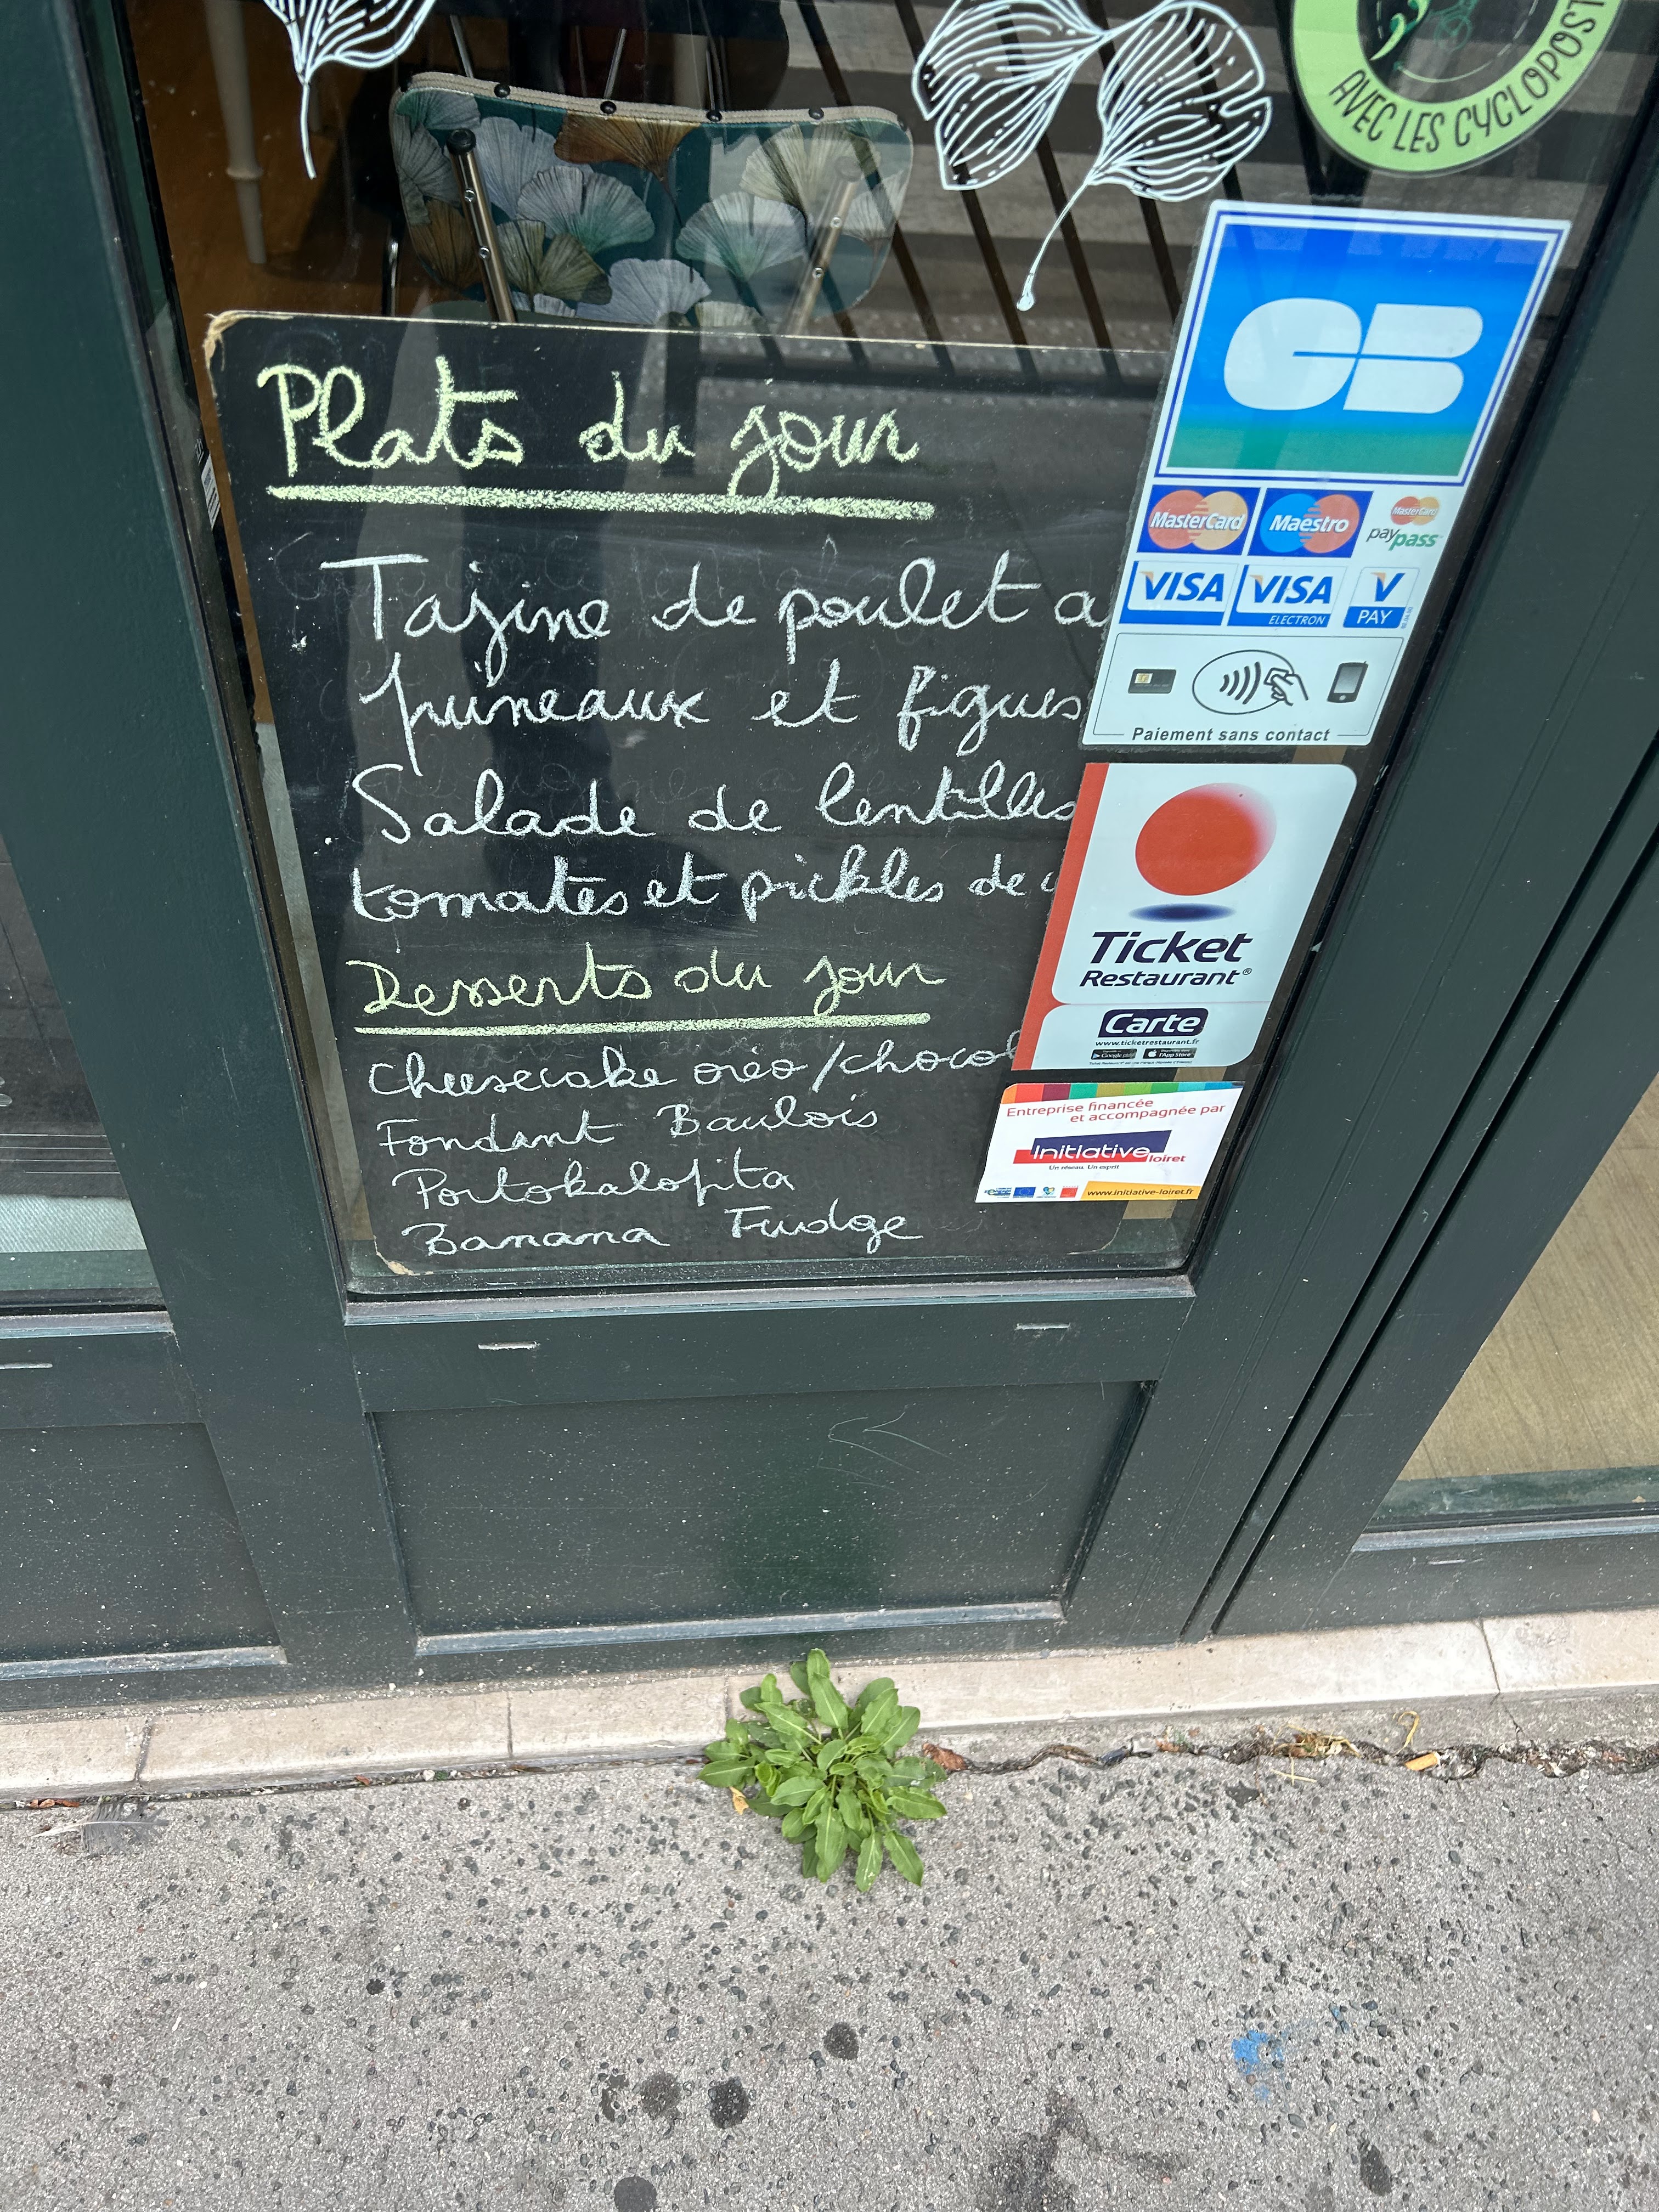 AVEC LES CYCLOPOST
CB
Plats du jour
MasterCard Maestro MasterCard
paypass
Tajine de poulet a
VISA VISA V
ELECTRON PAY
pruneaux et figues
Paiement sans contact
Salade de lentilles
tomates et pickles de
Ticket
Restaurant®
Desserts du jour
Carte
www.ticketrestaurant.fr
Google play App Store
Cheesecake oréo/chocol
Entreprise financée
et accompagnée par
Fondant Baulois
Initiative
loiret
Un réseau. Un esprit
Portokalopita
www.initiative-loiret.fr
Banana Fudge